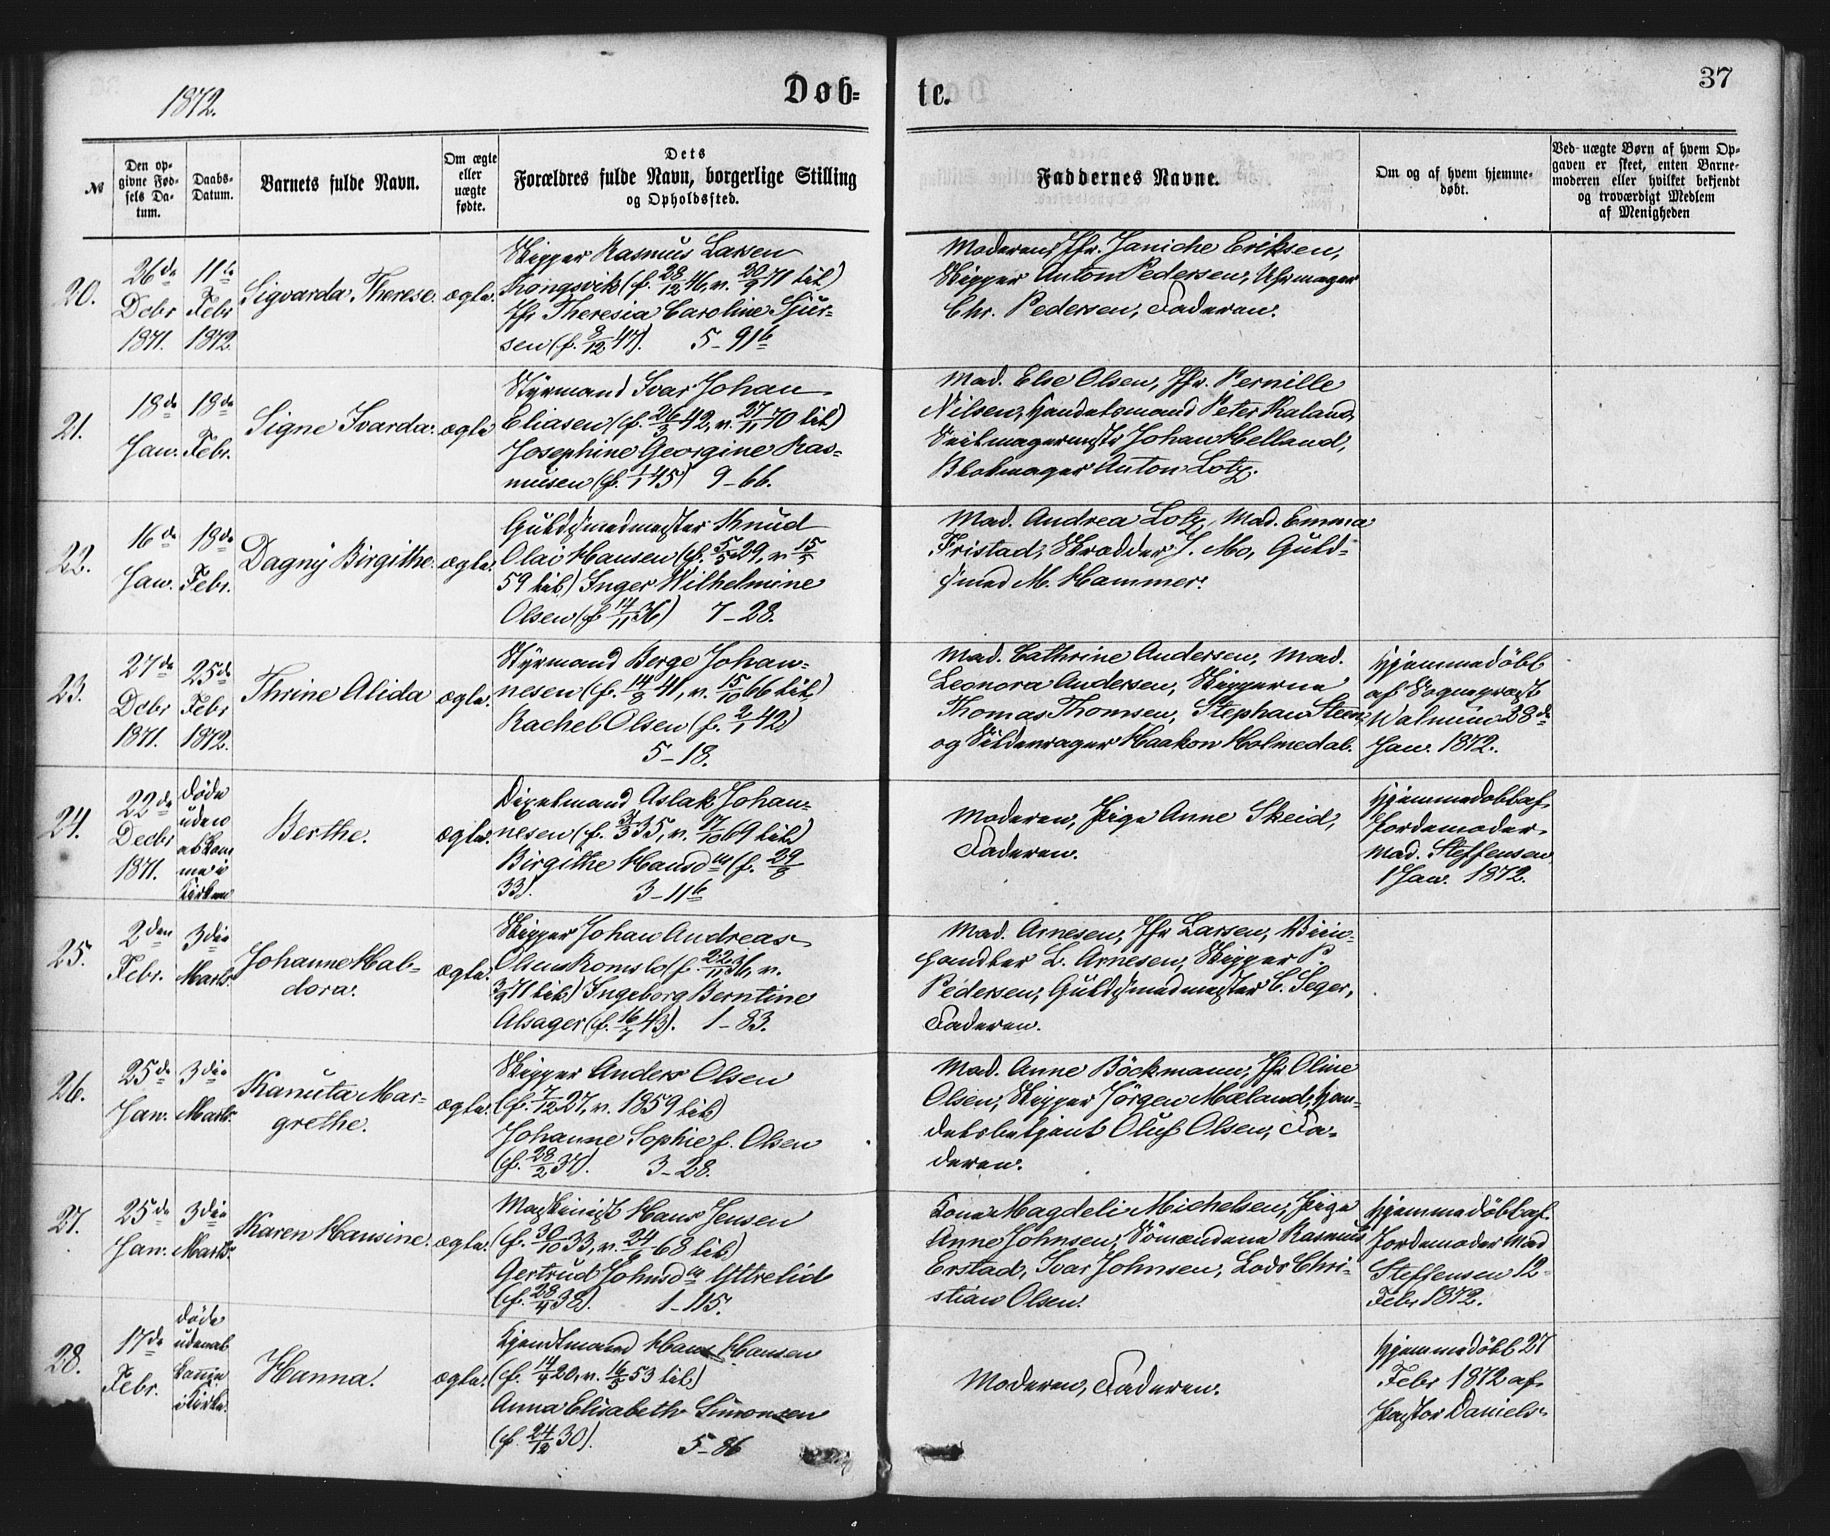 1872.
Døb-
te.
37
№
Den op-
givne Fød-
sels Da-
tum.
Daabs-
Datum.
Barnets fulde Navn.
Om ægte
eller
uægte
fødte.
Dets
Forældres fulde Navn, borgerlige Stilling
og Opholdssted.
Faddernes Navne.
Om og af hvem hjemme-
døbt.
Ved uægte Børn af hvem Op-
gaven er skeet, enten Barne-
moderen eller hvilket bekjendt
og troværdigt Medlem
af Menigheden
20.
26de
Decbr
1871.
11te
Febr
1872.
Sigvarda Therese.
ægte.
Skipper Rasmus Larsen
Kongsvik (f. 28/12 46, v. 20/9 71 til)
Jfr Theresia Caroline Sjur-
sen (f. 8/12 47). 5-91b
Moderen, Jfr. Janiche Eriksen,
Skipper Anton Pedersen, Uhrmager
Chr. Pedersen, Faderen.
21.
18de
Jan.
18de
Febr.
Signe Ivarda.
ægte
Styrmand Ivar Johan
Eliasen (f. 26/3 42, v. 27/11 70 til)
Josephine Georgine Ras-
musen (f. 1/1 45) 9-66.
Mad. Else Olsen, Jfr. Pernille
Nilsen, Handelsmand Peter Raland,
Seilmagermester Johan Helland,
Blokmager Anton Lotz.
22.
16de
Jan.
18de
Febr.
Dagny Birgithe.
ægte.
Guldsmedmester Knud
Olai Hansen (f. 5/5 29, v. 15/5
59 til) Inger Wilhelmine
Olsen (f. 14/11 36) 7-28.
Mad. Andrea Lotz, Mad. Emma
Fristad, Skrædder J. Mo, Guld-
smed M. Hammer.
23.
27de
Decbr
1871.
25de
Febr
1872.
Thrine Alida
ægte.
Styrmand Berge Johan-
nesen (f. 14/8 41, v. 15/10 66 til)
Rachel Olsen (f. 2/1 42)
5-18.
Mad. Cathrine Andersen, Mad.
Leonora Andersen, Skipperne
Thomas Thomsen, Stephan Steen
og Sildevrager Haakon Holmedal.
Hjemmedöbt
af Sognepræst
Walnum 28de
Jan. 1872.
24.
22de
Decbr
1871.
døde
uden
at kom
me i
Kirken
Berthe.
ægte.
Dixelmand Aslak Johan-
nesen (f. 3/3 35, v. 17/10 69 til)
Birgithe Hansdtr (f. 29/8
33). 3-11b
Moderen, Pige Anne Skeid,
Faderen.
Hjemmedøbt af
Jordemoder
Mad. Steffensen
1 Jan. 1872.
25.
2den
Febr.
3die
Marts.
Johanne Hal-
dora.
ægte.
Skipper Johan Andreas
Olsen Romslo (f. 22/11 36, v.
3/9 71 til) Ingeborg Berntine
Alsager (f. 16/7 43). 1-83.
Mad. Arnesen, Jfr Larsen, Viin-
handler L. Arnesen, Skipper P.
Pedersen, Guldsmedmester C. Seger,
Faderen.
26.
25de
Jan.
3die
Marts.
Kanuta Mar-
grethe.
ægte.
Skipper Anders Olsen
(f. 7/12 27, v. 1859 til)
Johanne Sophie f. Olsen
(f. 28/2 37). 3-28.
Mad. Anne Böckmann, Jfr Oline
Olsen, Skipper Jörgen Mæland, Han-
delsbetjent Oluf Olsen, Fa-
deren.
27.
25de
Jan.
3die
Marts.
Karen Hansine.
ægte.
Maskinist Hans Jensen
(f. 30/10 33, v. 24/6 68 til)
Gertrud Johnsdtr Yttrelid
(f. 28/4 38). 1-115.
Kone Magdeli Michelsen, Pige
Anne Johnsen, Sömændene Rasmus
Erstad, Ivar Johnsen, Lods Chri-
stian Olsen.
Hjemmedöbt af
Jordemoder Mad
Steffensen 12
Febr 1872.
28.
17de
Febr.
døde
uden at
komme
i Kirke.
Hanna.
ægte.
Hans Hansen
(f. 14/4 20, v. 16/5 53 til)
Anna Elisabeth Simonsen
(f. 24/12 30). 5-86
Moderen, Faderen.
Hjemmedöbt 27
Febr 1872 af
Pastor Daniels